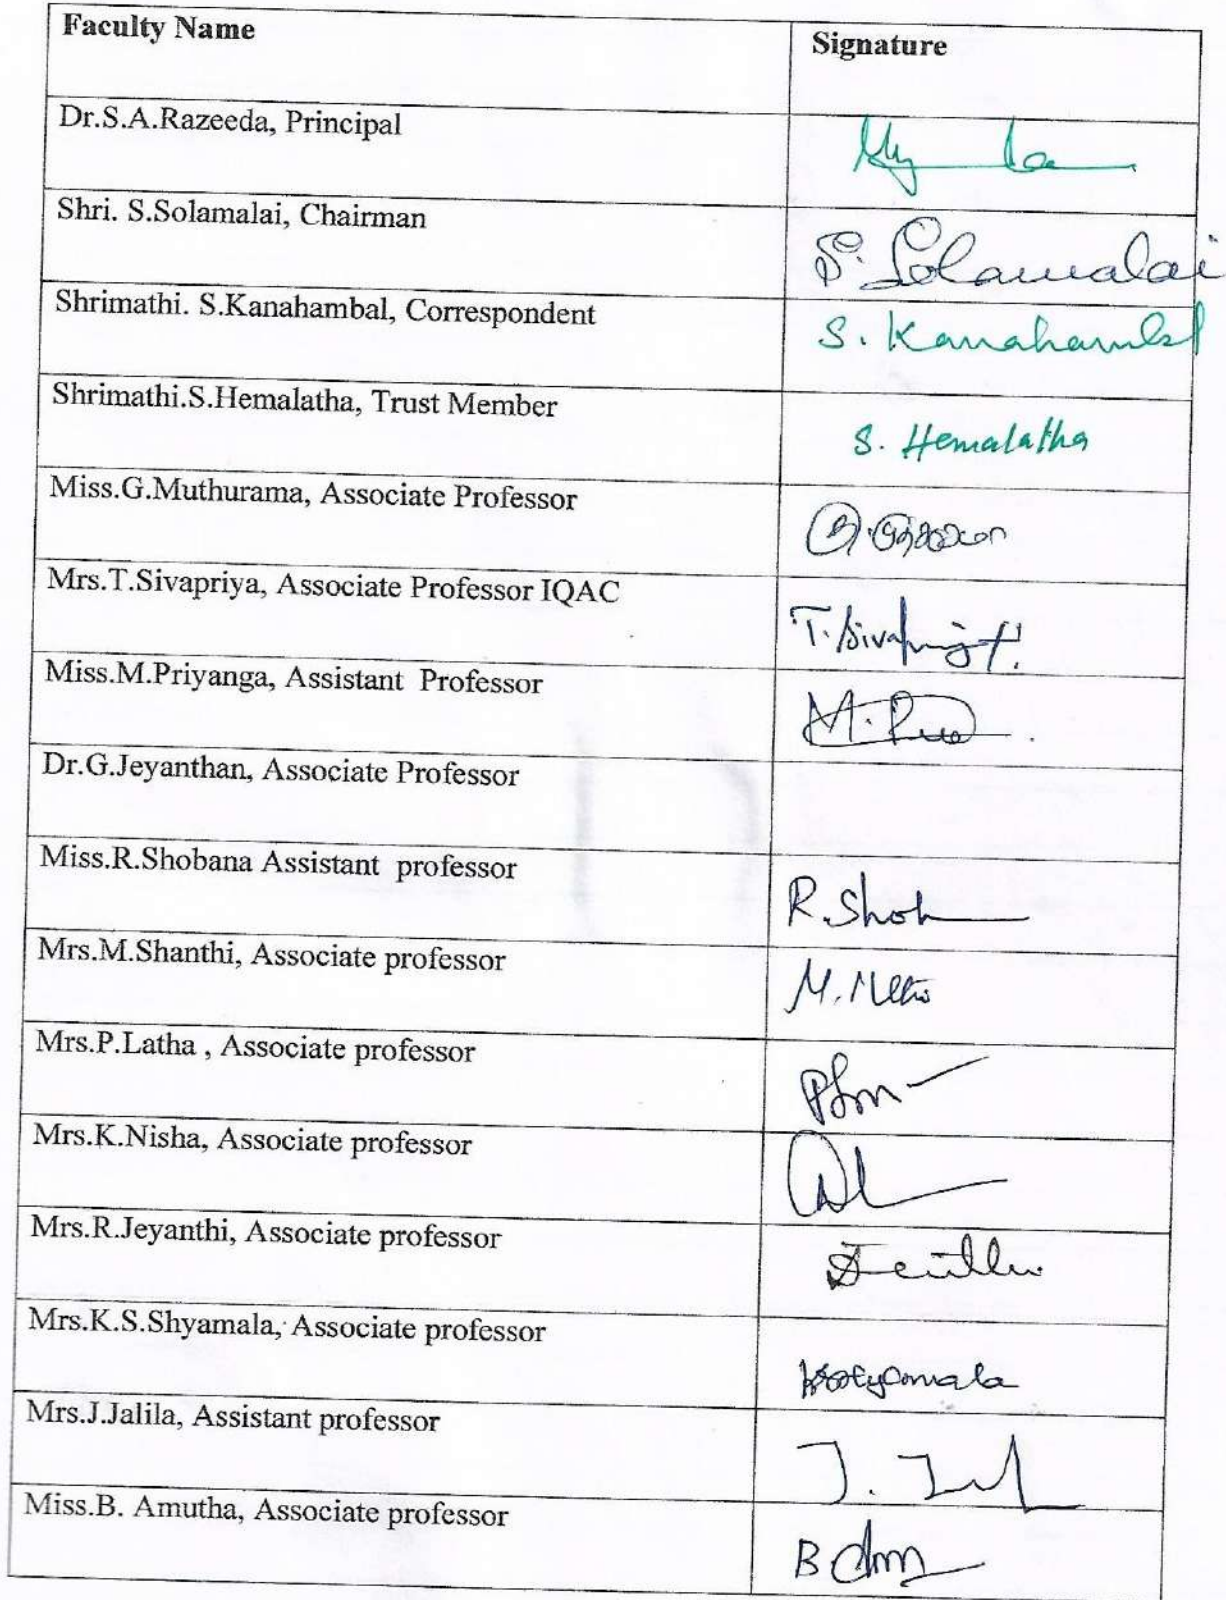 Faculty Name Signature
Dr.S.A.Razeeda, Principal
Shri. S.Solamalai, Chairman S. Solamalai
Shrimathi. S.Kanahambal, Correspondent S. Kanahambal
Shrimathi.S.Hemalatha, Trust Member S. Hemalatha
Miss.G.Muthurama, Associate Professor
Mrs.T.Sivapriya, Associate Professor IQAC T. Sivapriya
Miss.M.Priyanga, Assistant Professor M.
Dr.G.Jeyanthan, Associate Professor
Miss.R.Shobana Assistant professor R. Shob
Mrs.M.Shanthi, Associate professor M.
Mrs.P.Latha , Associate professor
Mrs.K.Nisha, Associate professor
Mrs.R.Jeyanthi, Associate professor
Mrs.K.S.Shyamala, Associate professor
Mrs.J.Jalila, Assistant professor J.
Miss.B. Amutha, Associate professor B